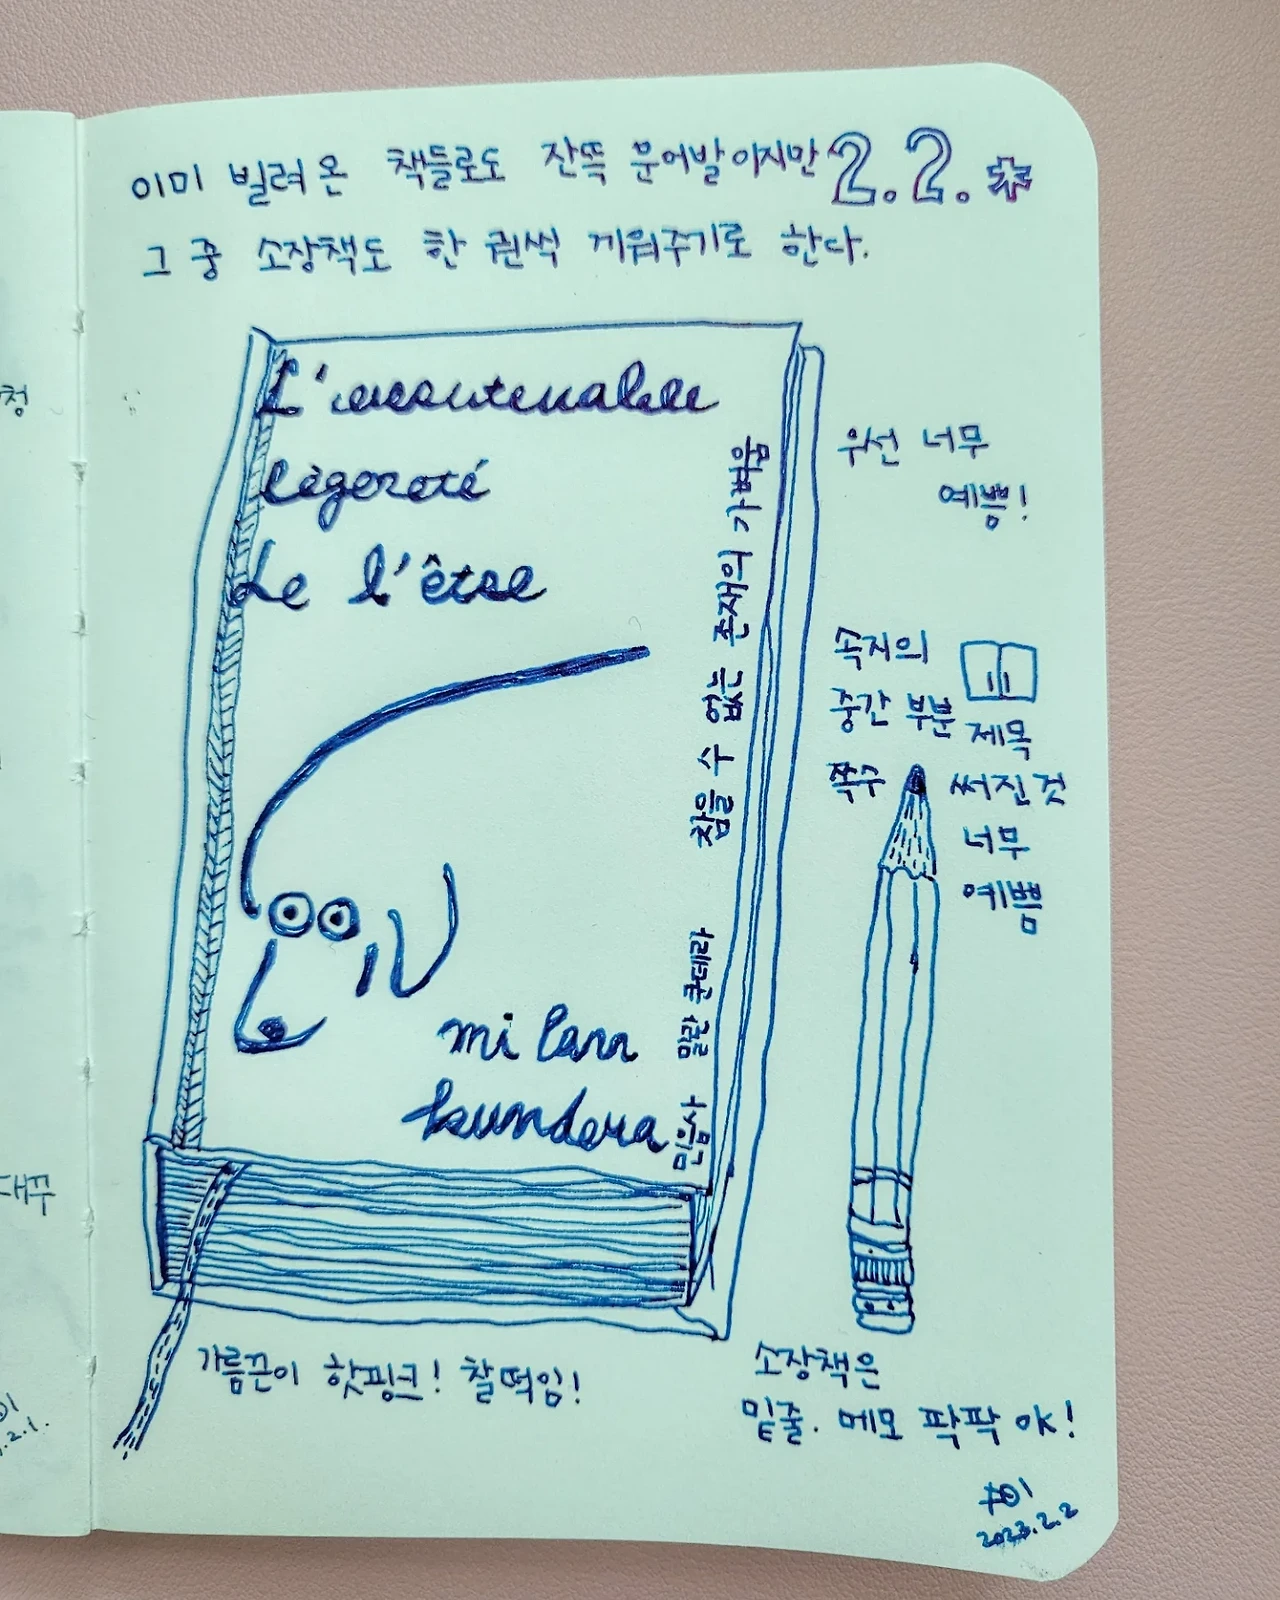 이미 빌려온 책들로도 잔뜩 문어발이지만 2.2.
그 중 소장책도 한 권씩 게워주기로 한다.
L'insoutenable
légèreté
de l'être
참을 수 없는 존재의 가벼움
밀란 쿤데라
민음사
milan
kundera
우선 너무
예쁨!
속지의
중간 부분
쪽수
제목
써진 것
너무
예쁨
가름끈이 핫핑크! 찰떡임!
소장책은
밑줄. 메모 팍팍 OK!
2023.2.2
청
대꾸
.2.1.